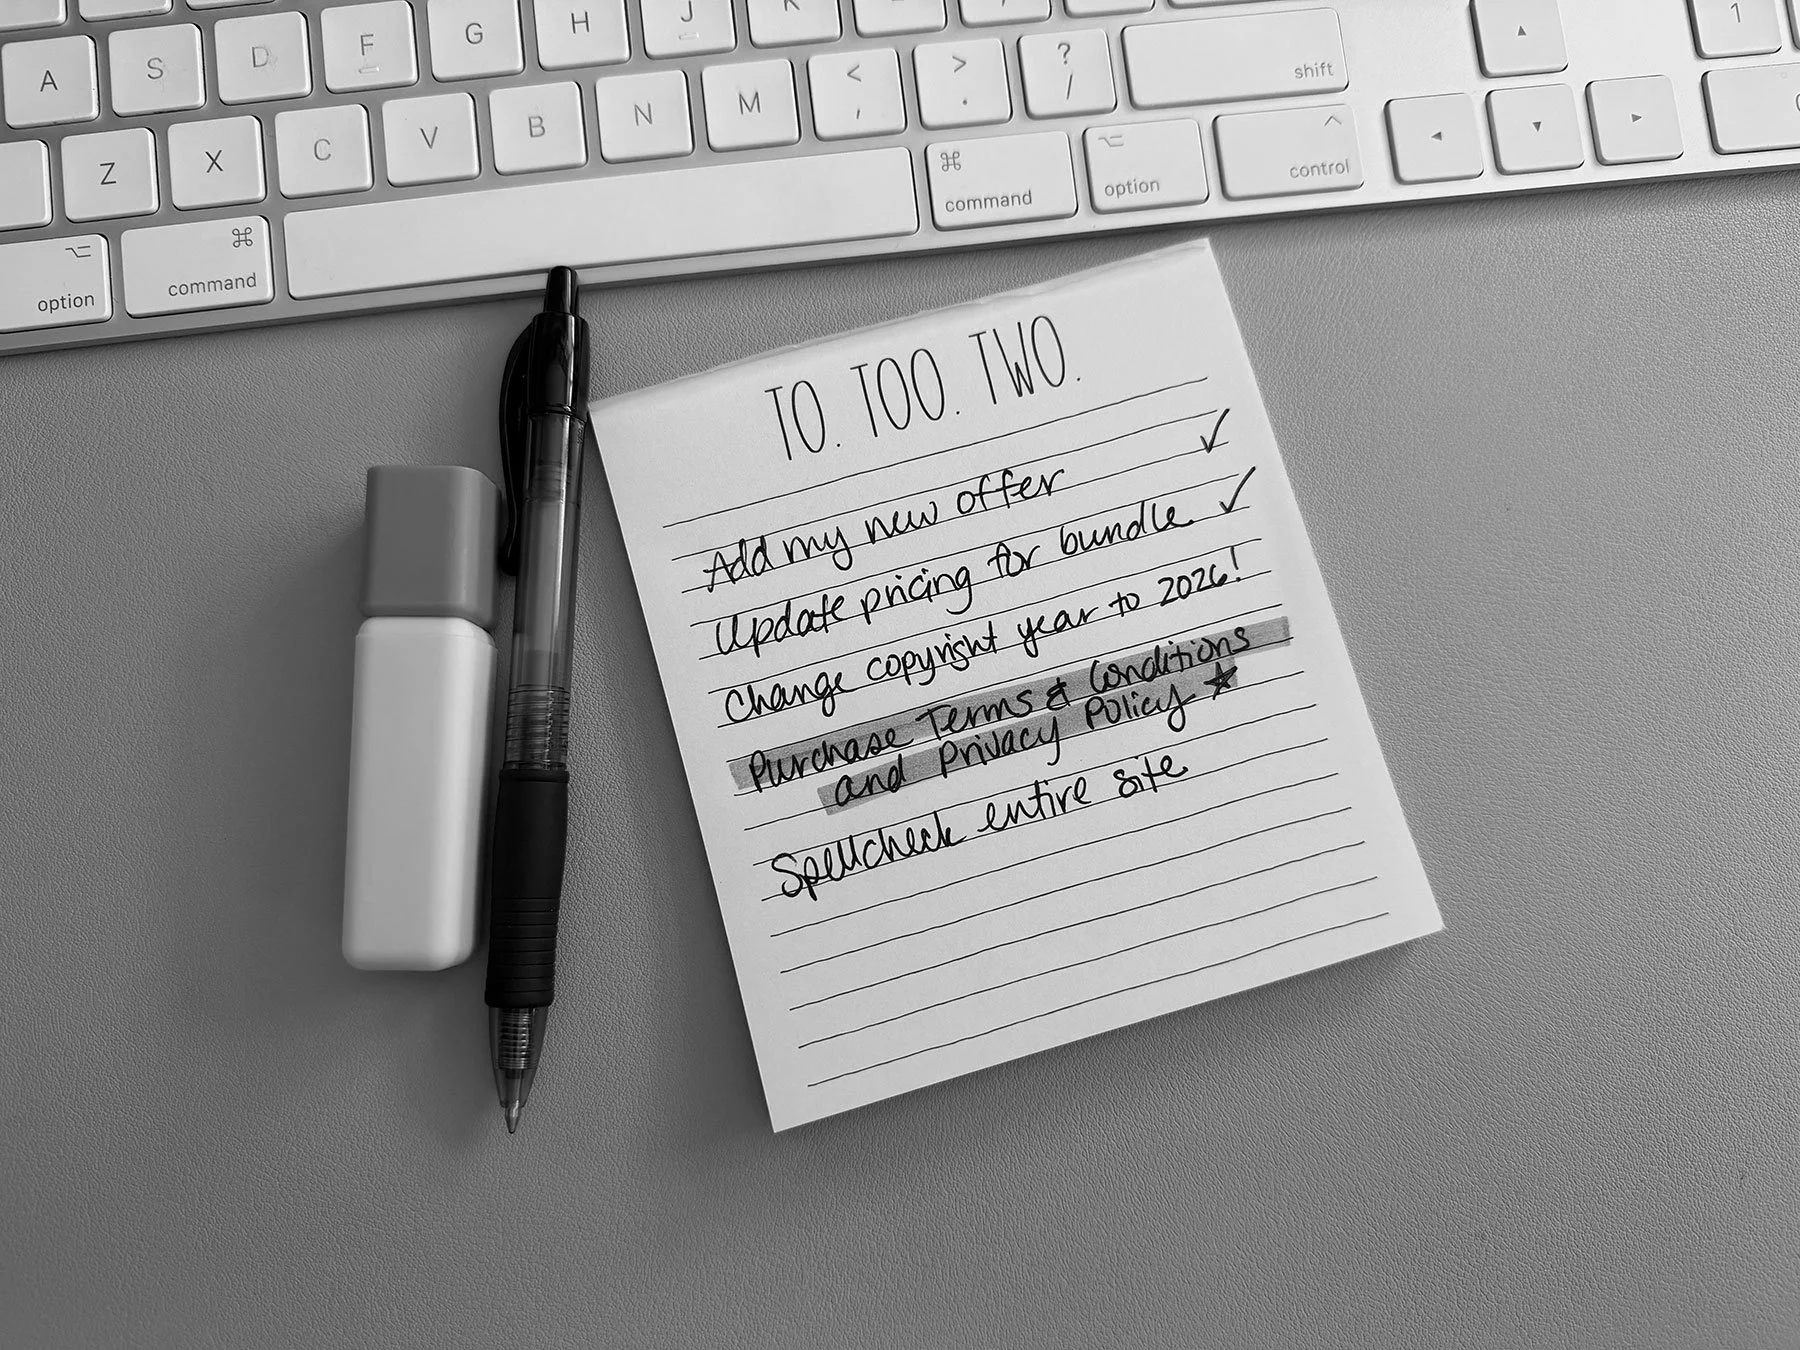 A S D F G H J K
Z X C V B N M < , > . ? / shift 1
option ⌘ command ⌘ command option control
TO. TOO. TWO.
Add my new offer ✓
Update pricing for bundle ✓
Change copyright year to 2026!
Purchase Terms & Conditions
and Privacy Policy ★
Spellcheck entire site